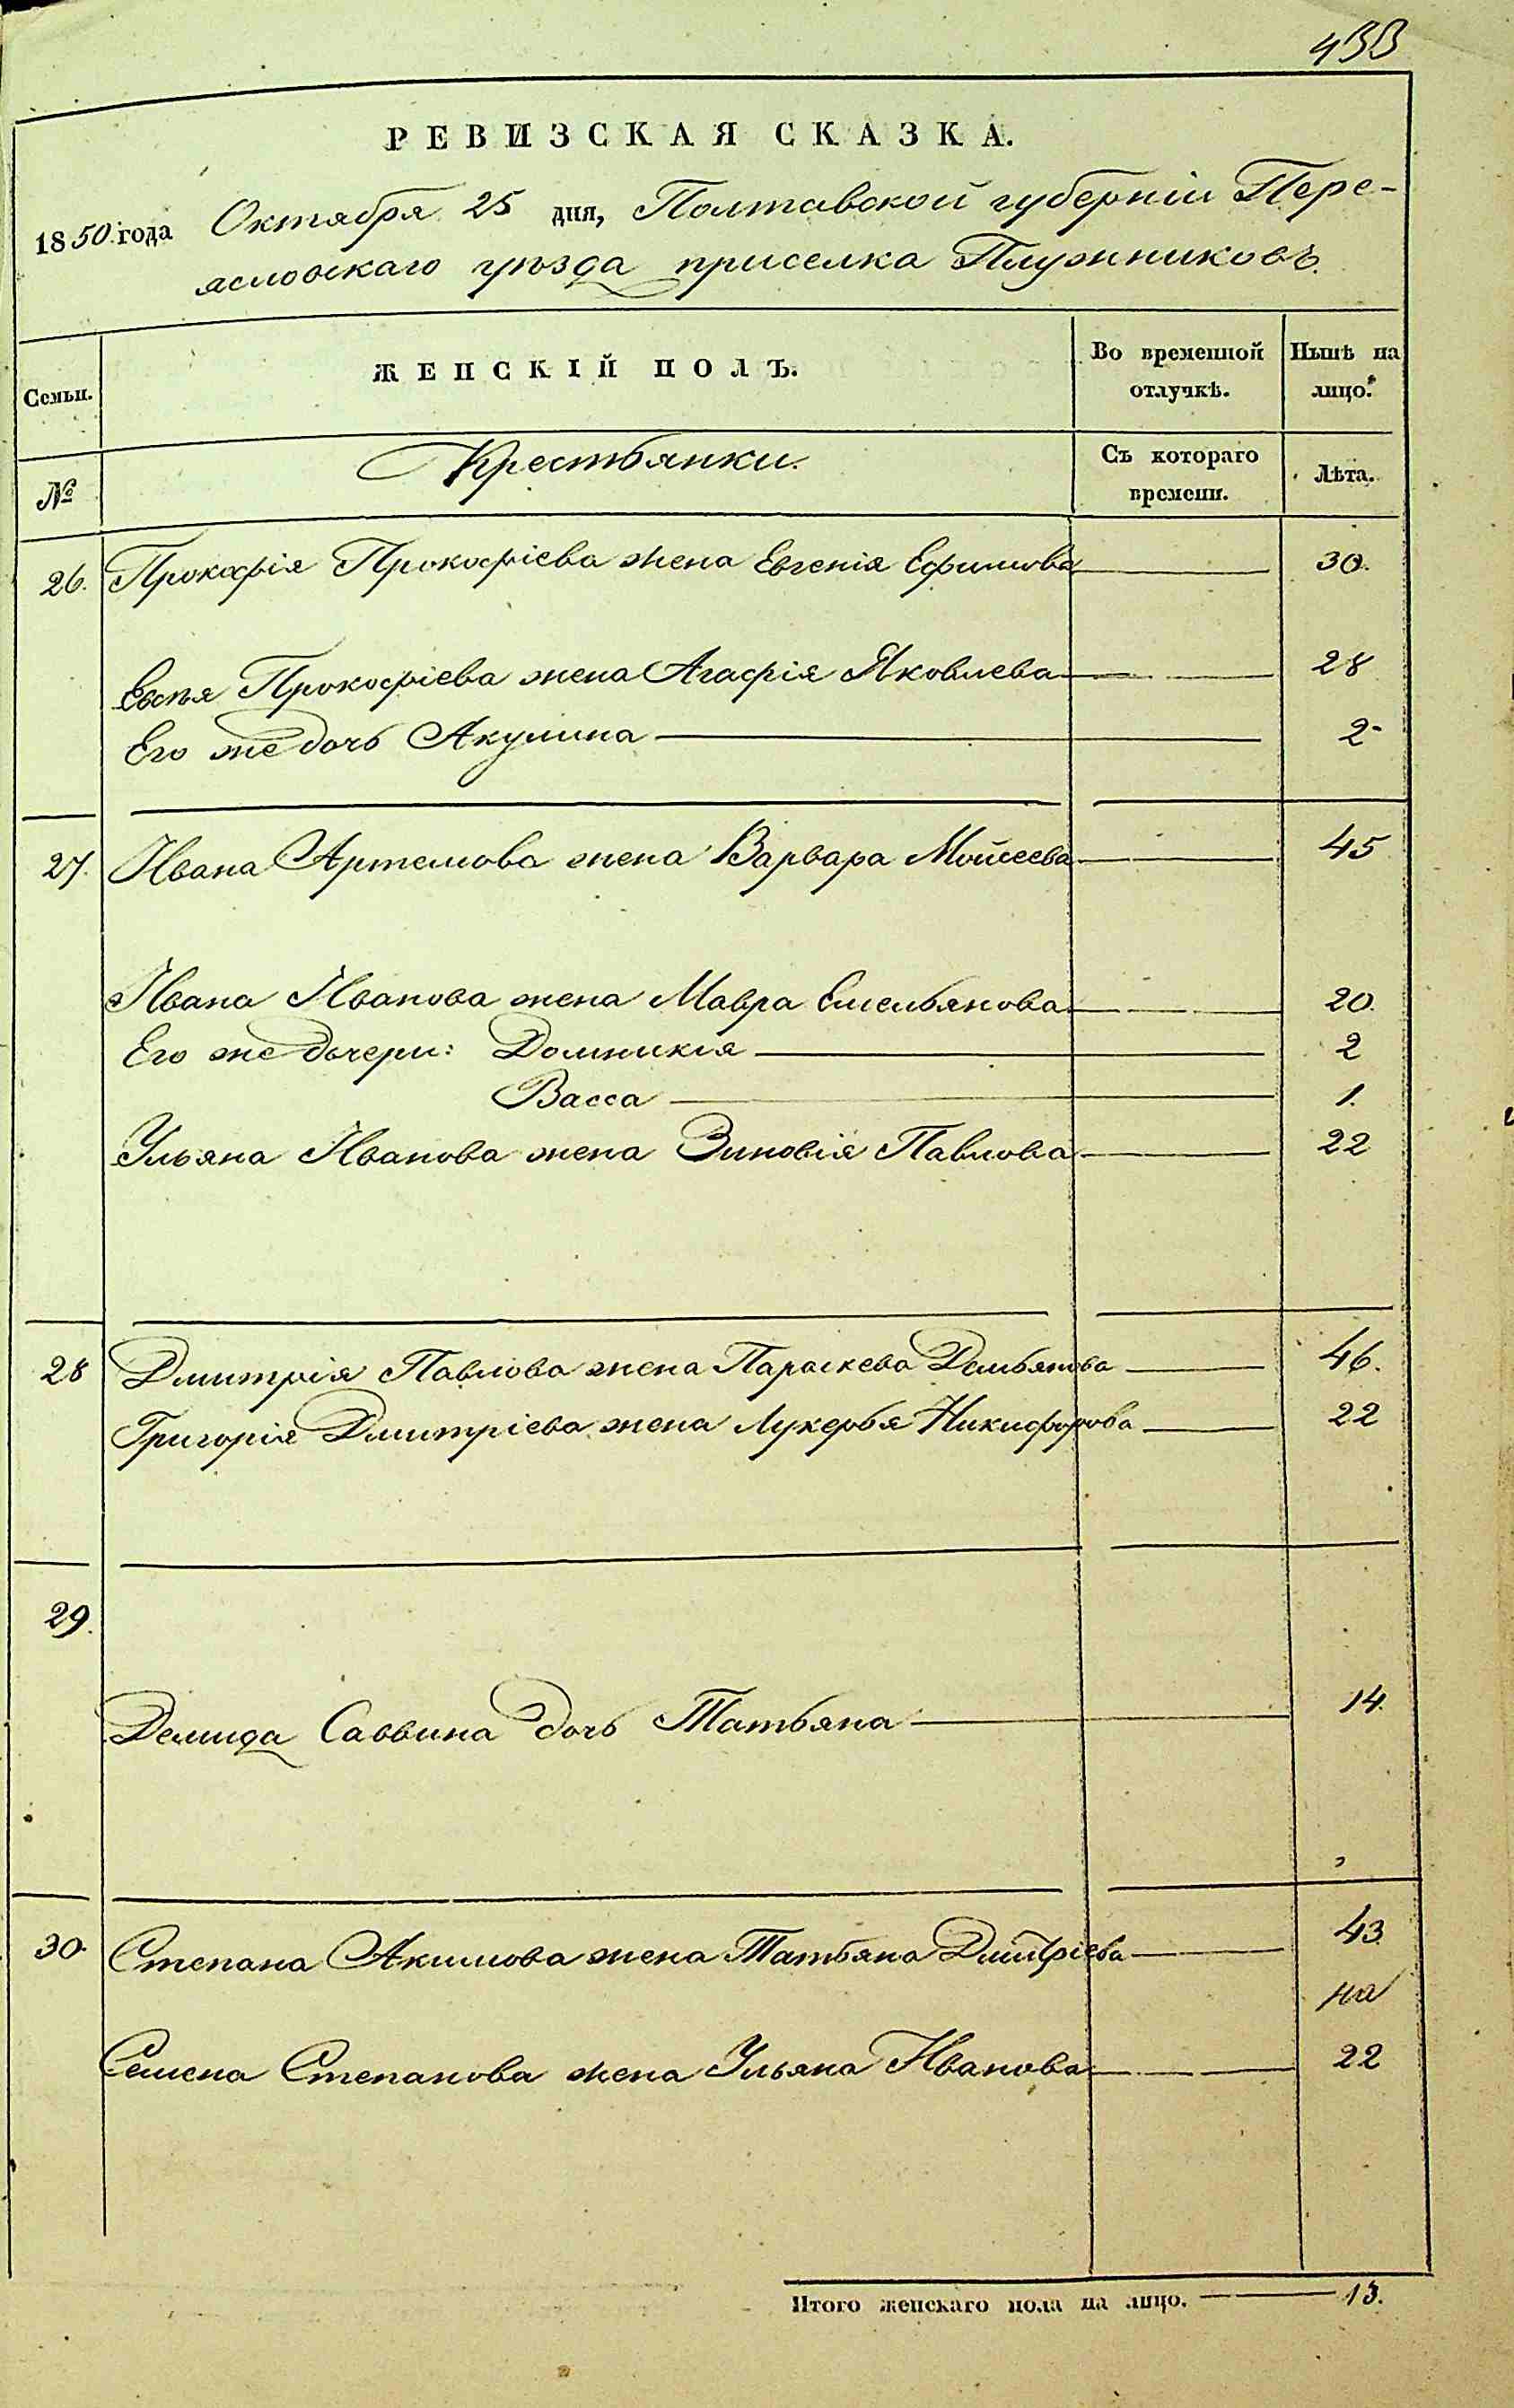 433
РЕВИЗСКАЯ СКАЗКА.
1850 года Октября 25 дня, Полтавской губерніи Пере-
ясловскаго уѣзда приселка Плужниковъ.
Семьи.
ЖЕНСКІЙ ПОЛЪ.
Во временной отлучкѣ.
Нынѣ на лицо.
№
Крестьянки.
Съ котораго времени.
Лѣта.
26. Прокофія Прокофіева жена Евгенія Ефимова 30.
Евсѣя Прокофіева жена Агафія Яковлева 28
Его же дочь Акулина 2
27. Ивана Артемова жена Варвара Мойсеева 45
Ивана Иванова жена Мавра Емельянова 20.
Его же дочери: Домникія 2
Васса 1.
Ульяна Иванова жена Зиновія Павлова 22
28 Дмитрія Павлова жена Параскева Демьянова 46.
Григорія Дмитріева жена Лукерья Никифорова 22
29.
Демида Саввина дочь Татьяна 14.
30. Степана Акимова жена Татьяна Дмитріева 43
на
Семена Степанова жена Ульяна Иванова 22
Итого женскаго пола на лицо. 13.